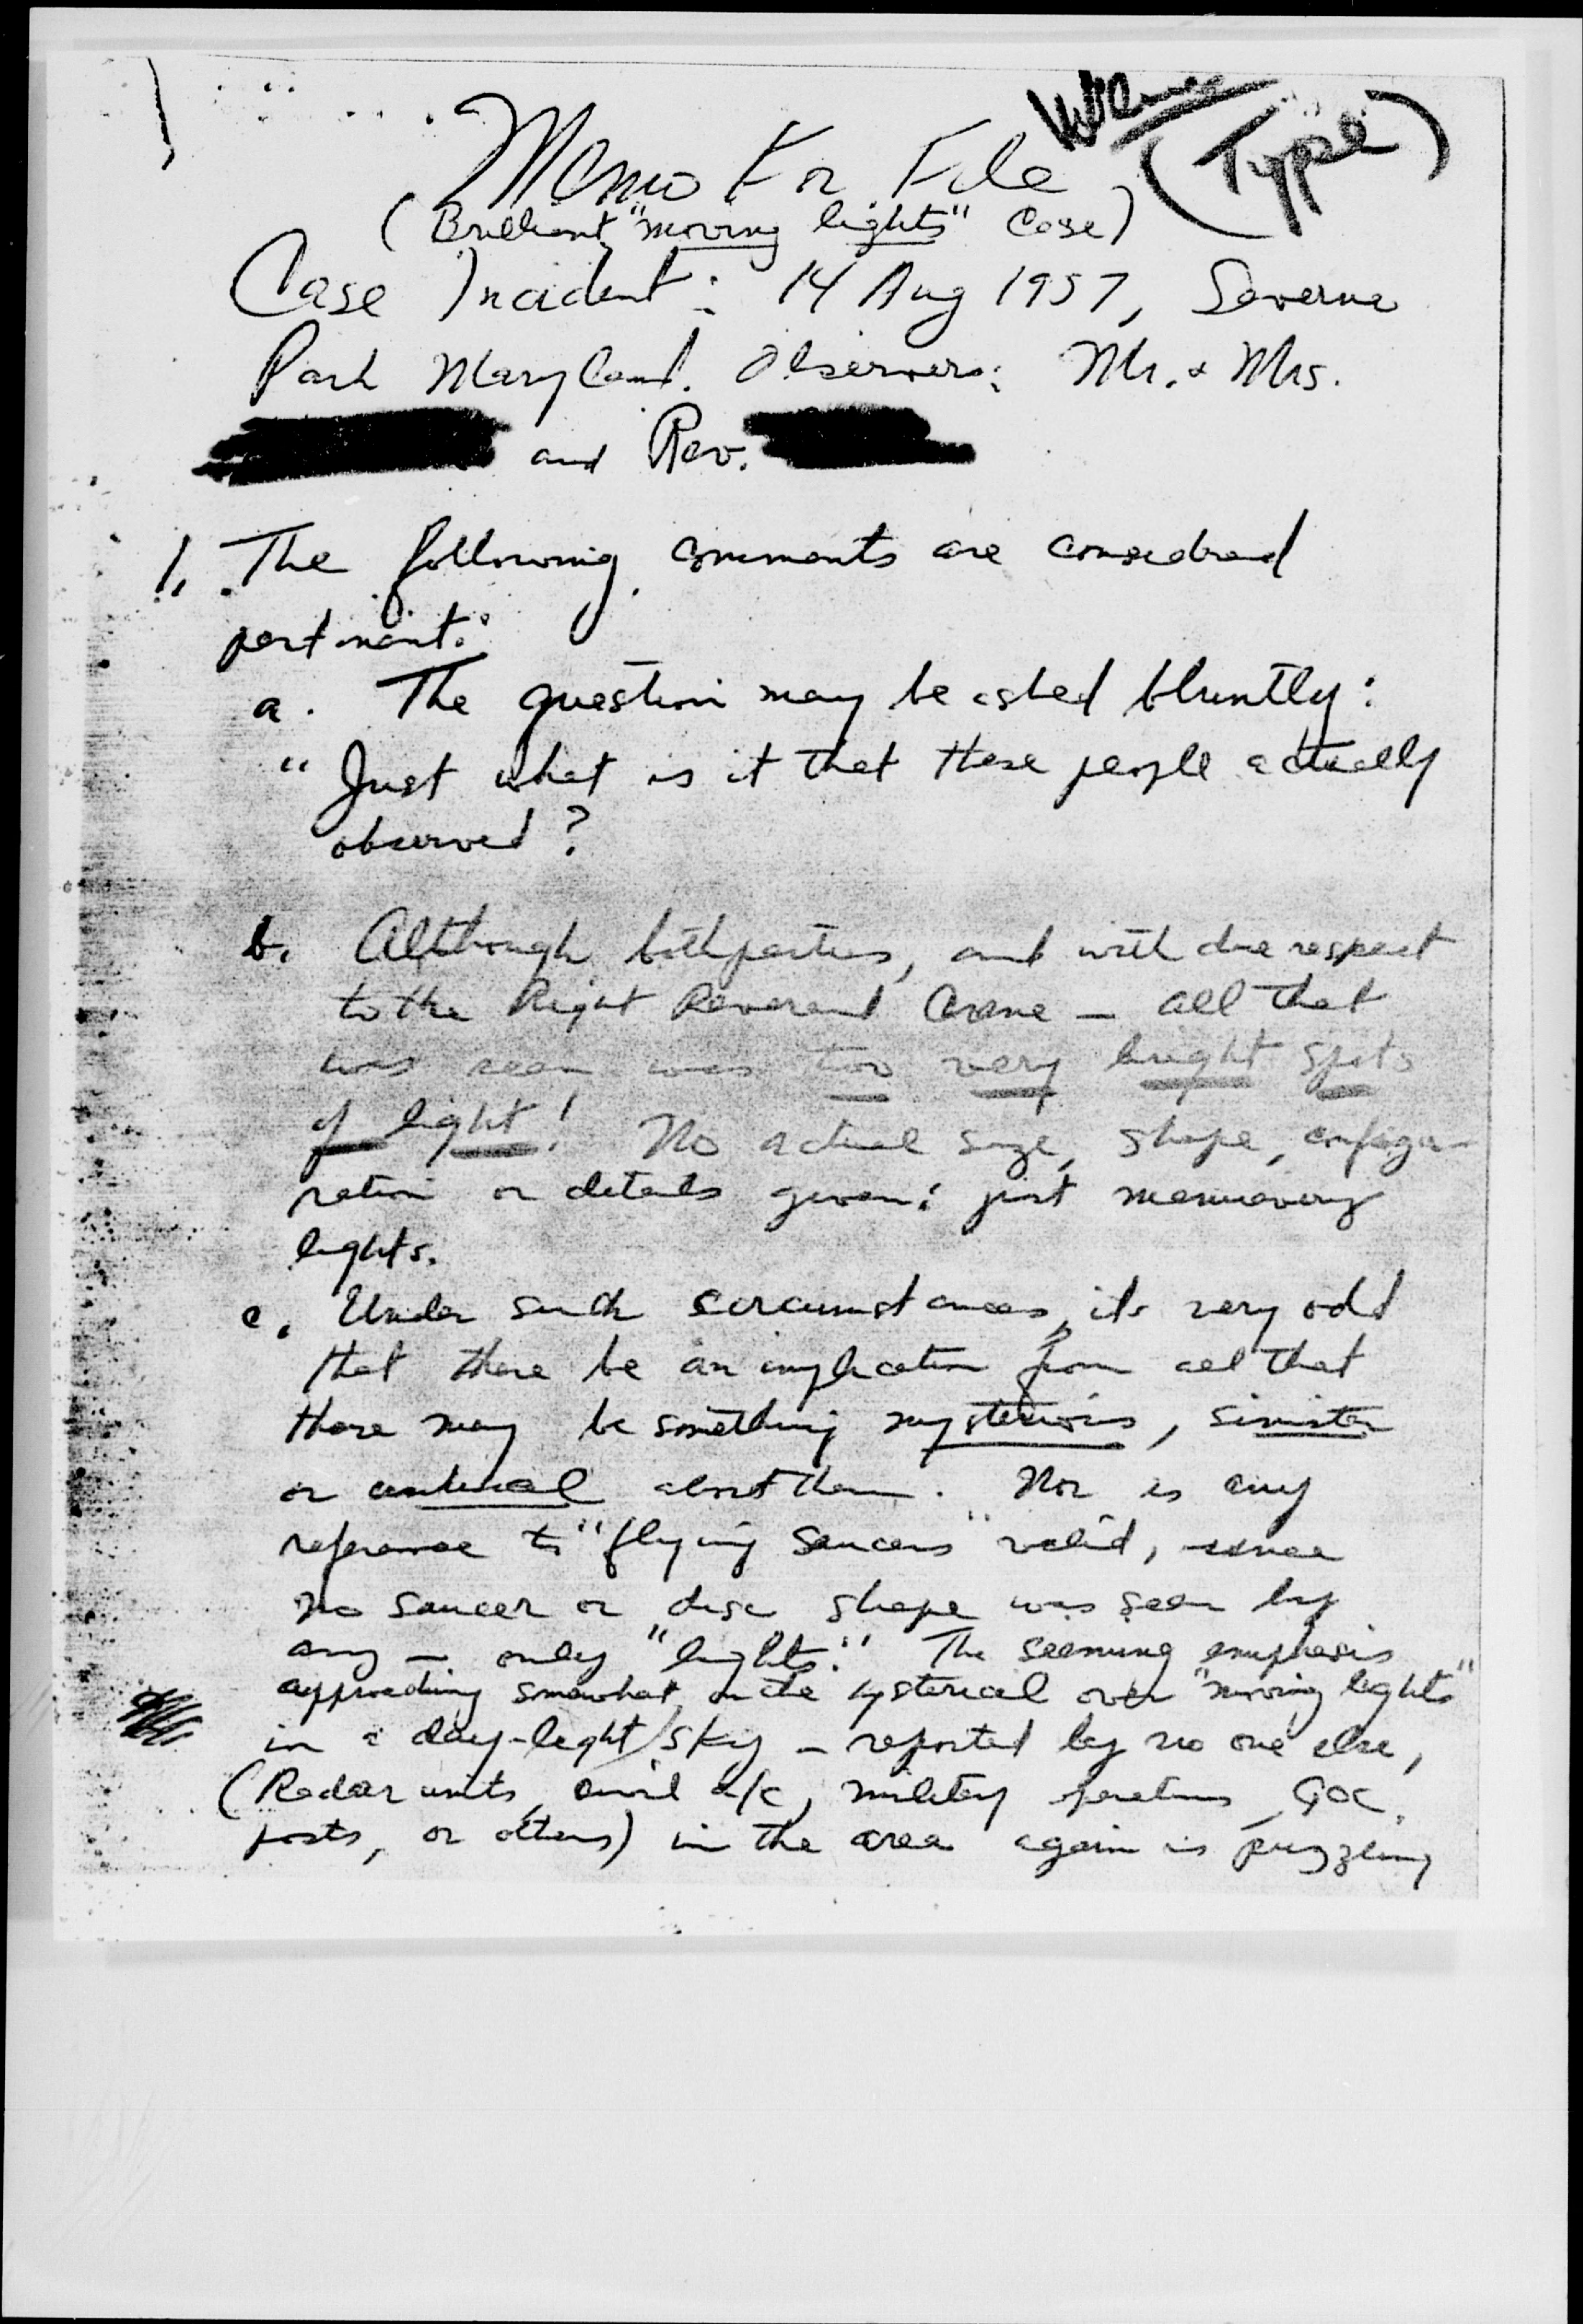 (Type)
Memo For File
(Brilliant "moving lights" Case)
Case Incident: 14 Aug 1957, Severna
Park Maryland. Observers: Mr. & Mrs.
and Rev.
1. The following comments are considered
pertinent:
a. The question may be asked bluntly:
"Just what is it that these people actually
observed?
b. Although both parties, and with due respect
to the Right Reverend Crane - all that
was seen was two very bright spots
of light! No actual size, shape, configu-
ration or details given; just manuevering
lights.
c. Under such circumstances, its very odd
that there be an implication from all that
there may be something mysterious, sinister
or about them. Nor is any
reference to "flying saucers" valid, since
no saucer or disc shape was seen by
any - only "lights." The seeming emphasis
approaching somewhat on the hysterical over "moving lights"
in a day-light sky - reported by no one else,
(Radar units, civil a/c, military GOC
posts, or others) in the area again is puzzling